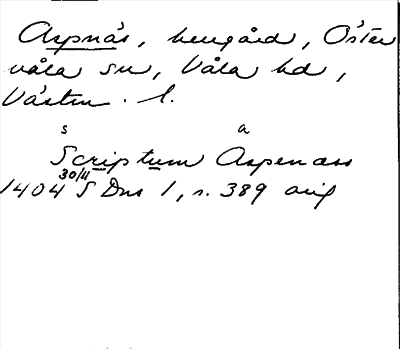 Aspnäs, herrgård, Öster
våla sn, Våla hd,
Västm. l.
s a
Scriptum Aspenæss
1404 30/11 SDns 1, n. 389 orig